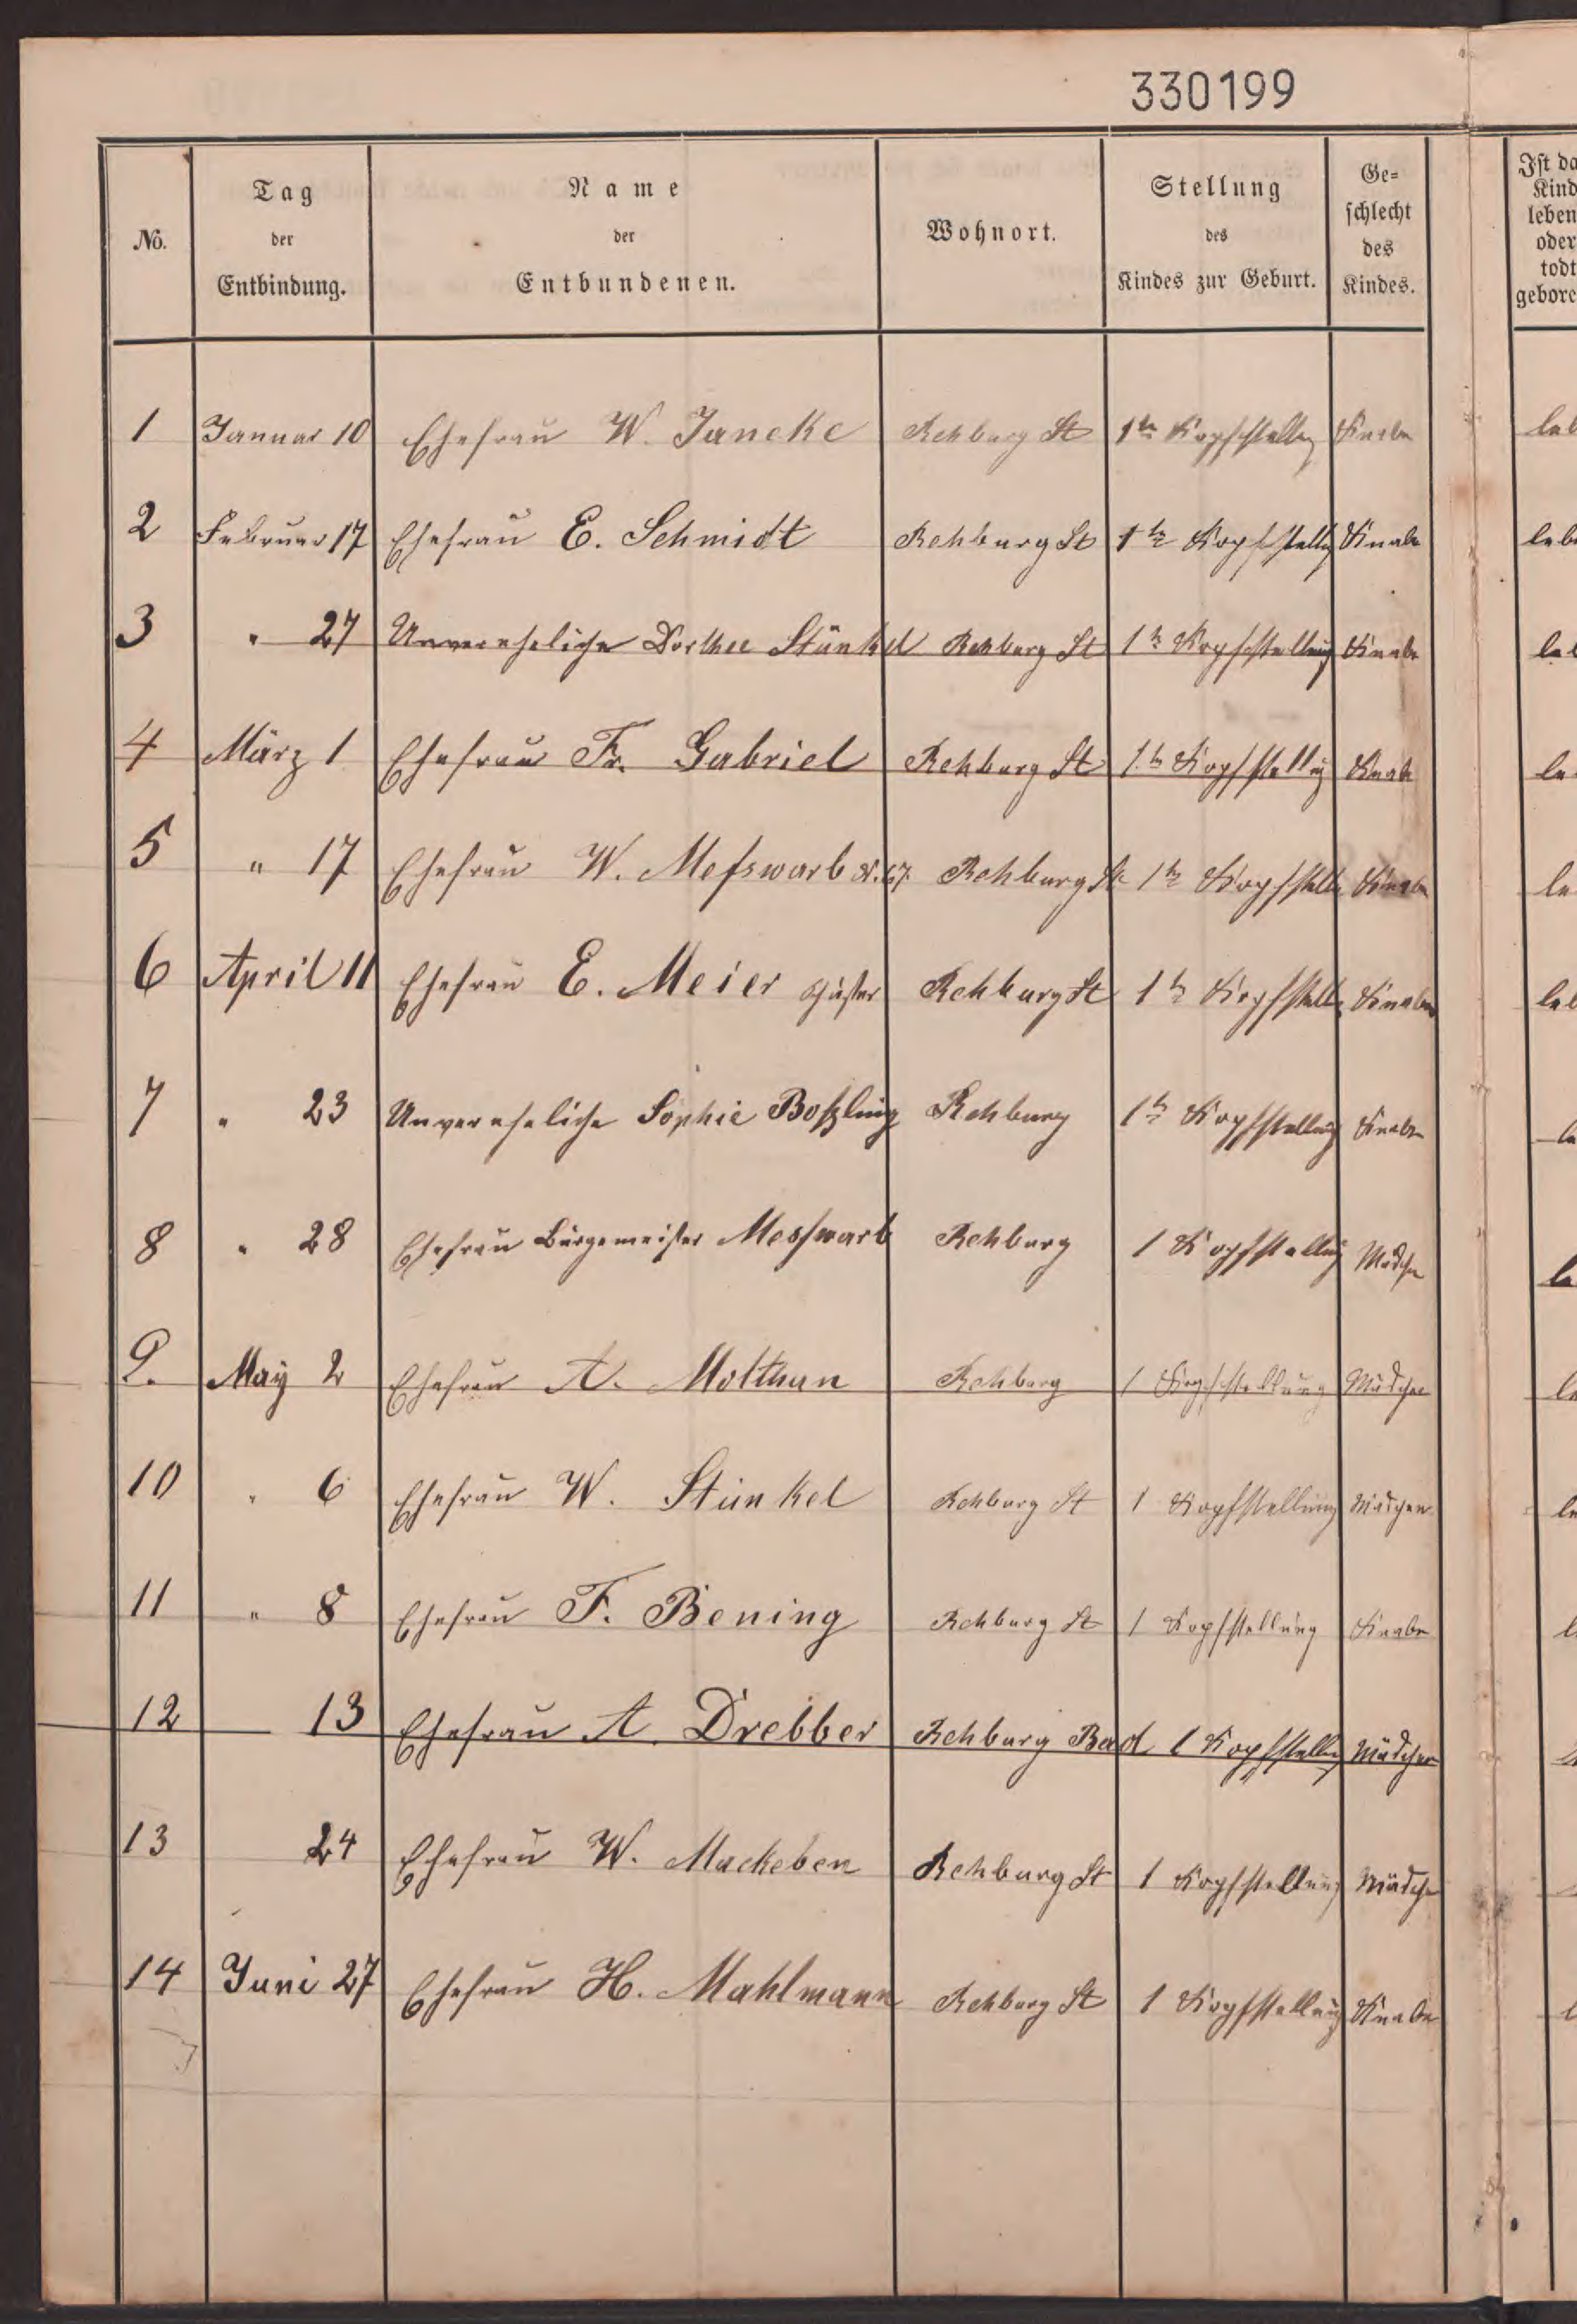 330199
No. Tag der Entbindung. Name der Entbundenen. Wohnort. Stellung des Kindes zur Geburt. Ge=schlecht des Kindes. Ist da Kind leben oder todt gebore
1 Januar 10 Ehefrau W. Janeke Rehburg St 1te Kopfstellg Knabe leb
2 Februar 17 Ehefrau E. Schmidt Rehburg St 1te Kopfstellg Knabe lebe
3 " 27 Unvereheliche Dorthee Stünkel Rehburg St 1te Kopfstellung Knabe leb
4 März 1 Ehefrau Fr. Gabriel Rehburg St 1te Kopfstellg Knabe le
5 " 17 Ehefrau W. Meßwarb N. 67. Rehburg St 1te Kopfstellg Knabe le
6 April 11 Ehefrau E. Meier Rehburg St 1te Kopfstellg Knabe leb
7 " 23 Unvereheliche Sophie Boßling Rehburg 1te Kopfstellung Knabe le
8 " 28 Ehefrau Bürgemeister Messwarb Rehburg 1 Kopfstellung Mädche le
9. May 2 Ehefrau A. Molthan Rehburg 1 Kopfstellung Mädchen le
10 " 6 Ehefrau W. Stünkel Rehburg St 1 Kopfstellung Mädchen le
11 " 8 Ehefrau F. Bening Rehburg St 1 Kopfstellung Knabe l
12 13 Ehefrau A. Drebber Rehburg Bad 1 Kopfstellung Mädchen
13 24 Ehefrau W. Mackeben Rehburg St 1 Kopfstellung Mädche
14 Juni 27 Ehefrau H. Mahlmann Rehburg St 1 Kopfstellung Knabe l